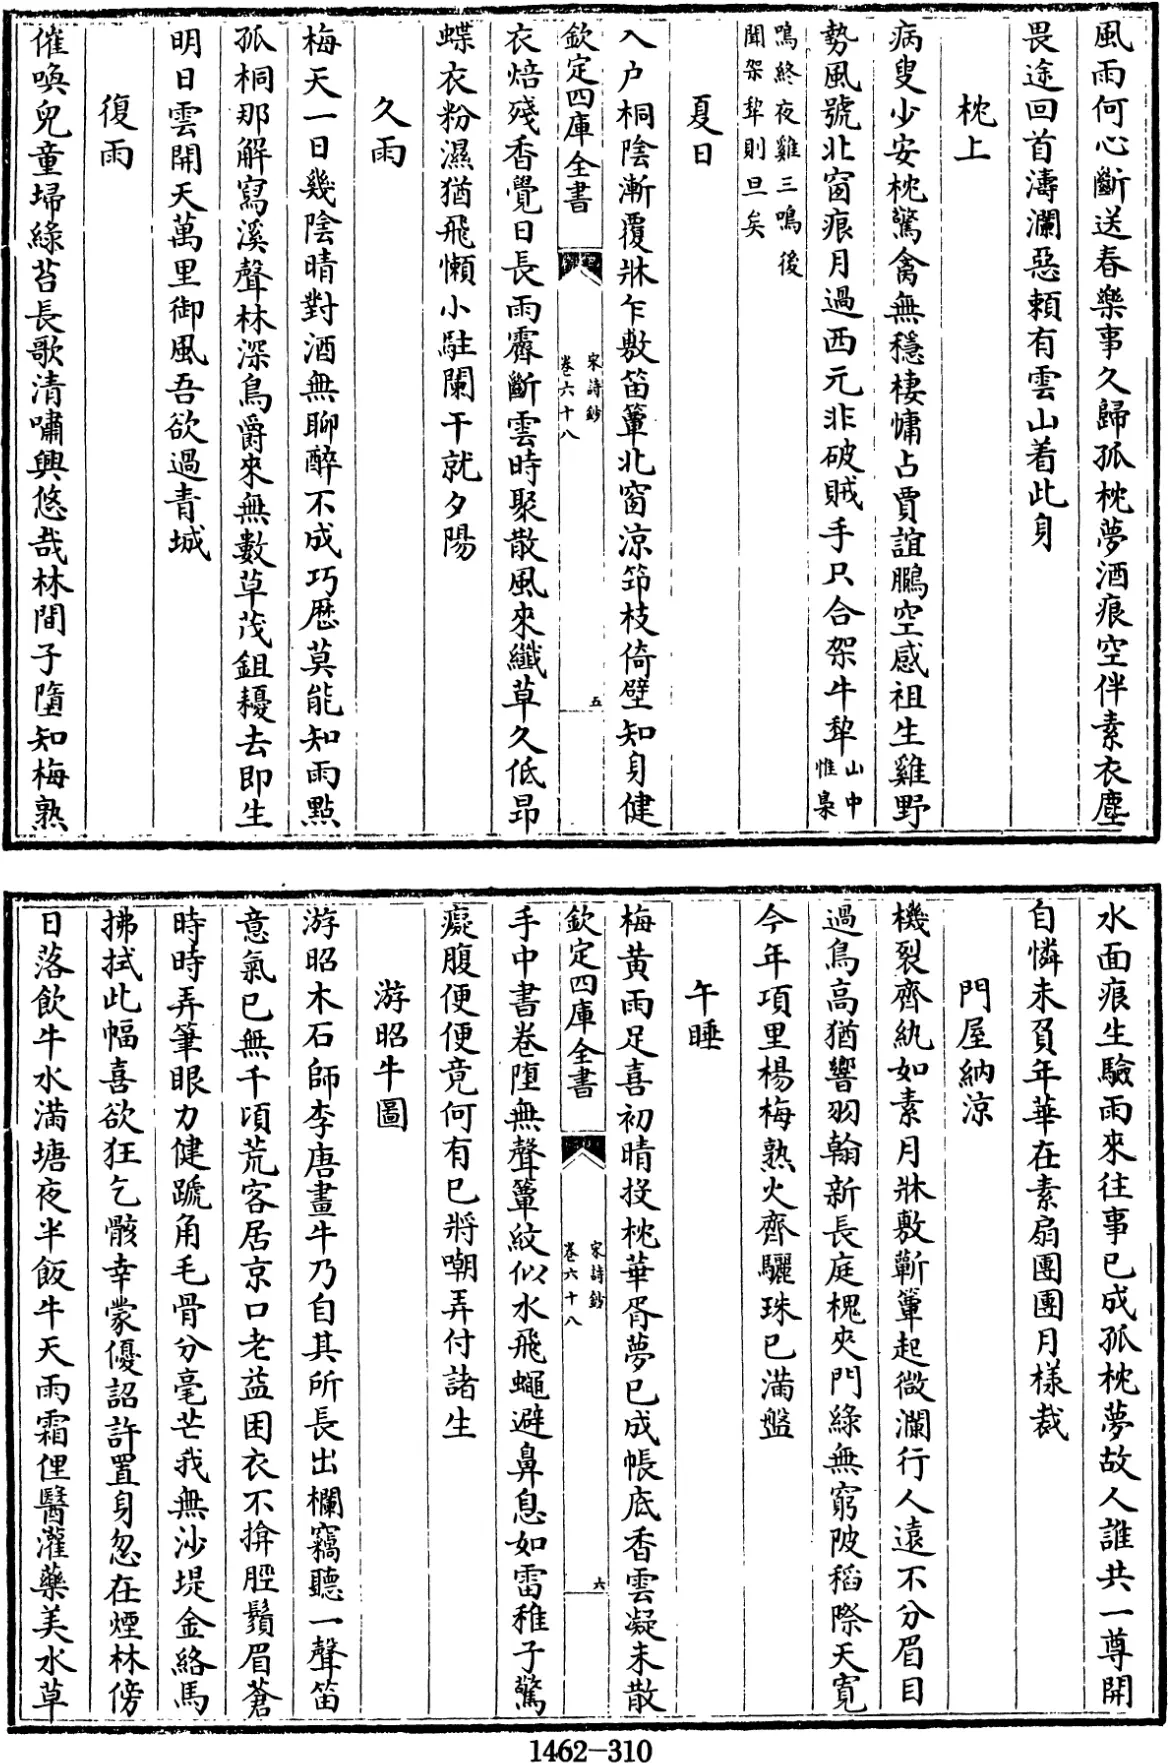 風雨何心斷送春樂事久歸孤枕夢酒痕空伴素衣塵
畏途回首濤瀾惡頼有雲山着此身
枕上
病叟少安枕驚禽無穩棲慵占賈誼鵬空感祖生雞野
勢風號北窗痕月過西元非破賊手只合架牛犂山中惟梟
鳴終夜雞三鳴後
聞架犂則旦矣
夏日
入户桐陰漸覆牀乍敷笛簟北窗涼筇枝倚壁知身健
欽定四庫全書
宋詩鈔
卷六十八
五
衣焙殘香覺日長雨霽斷雲時聚散風來纖草久低昂
蝶衣粉濕猶飛懶小駐闌干就夕陽
久雨
梅天一日幾陰晴對酒無聊醉不成巧厯莫能知雨點
孤桐那解寫溪聲林深鳥爵來無數草茂鉏耰去即生
明日雲開天萬里御風吾欲過青城
復雨
催喚兒童埽綠苔長歌清嘯興悠哉林間子墮知梅熟
水面痕生驗雨來往事已成孤枕夢故人誰共一尊開
自憐未負年華在素扇團團月樣裁
門屋納涼
機裂齊紈如素月牀敷蘄簟起微瀾行人遠不分眉目
過鳥高猶響羽翰新長庭槐夾門綠無窮陂稻際天寬
今年項里楊梅熟火齊驪珠已滿盤
午睡
梅黄雨足喜初晴投枕華胥夢已成帳底香雲凝未散
欽定四庫全書
宋詩鈔
卷六十八
六
手中書卷墮無聲簟紋似水飛蠅避鼻息如雷稚子驚
癡腹便便竟何有已將嘲弄付諸生
游昭牛圖
游昭木石師李唐畫牛乃自其所長出欄竊聽一聲笛
意氣已無千頃荒客居京口老益困衣不揜脛鬚眉蒼
時時弄筆眼力健蹏角毛骨分毫芒我無沙堤金絡馬
拂拭此幅喜欲狂乞骸幸蒙優詔許置身忽在煙林傍
日落飲牛水滿塘夜半飯牛天雨霜俚醫灌藥美水草
1462-310